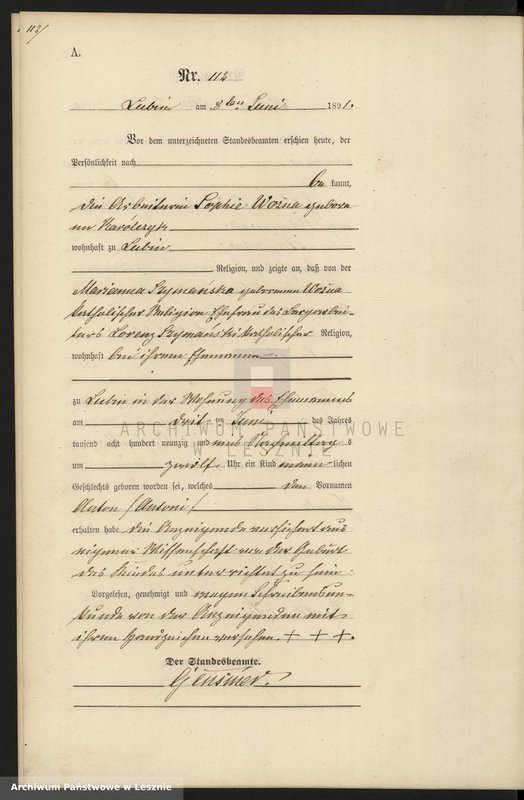 112/
A.
Nr. 112
Lubin am 3ten Juni 1891.
Vor dem unterzeichneten Standesbeamten erschien heute, der
Persönlichkeit nach
be kannt,
die Arbeiterin Sophie Woźna gebore
ne
wohnhaft zu Lubin
Religion, und zeigte an, daß von der
Marianna Szymańska geborenen Woźna
katholischer Religion Ehefrau des
Lorenz Szymański katholischer Religion,
wohnhaft bei ihrem Ehemanne
zu Lubin in der Wohnung des Ehemannes
am drit ten Juni des Jahres
tausend acht hundert neunzig und eins Vormittag s
um zwölf Uhr ein Kind männ lichen
Geschlechts geboren worden sei, welches den Vornamen
Anton /Antoni/
erhalten habe die Anzeigende versichert aus
eigener Wissenschaft von der Geburt
des Kindes unterrichtet zu sein
Vorgelesen, genehmigt und wegen Schreibensun-
kunde von der Anzeigenden mit
ihrem Handzeichen versehen. + + +.
Der Standesbeamte.
ARCHIWUM PAŃSTWOWE
W LESZNIE
Archiwum Państwowe w Lesznie